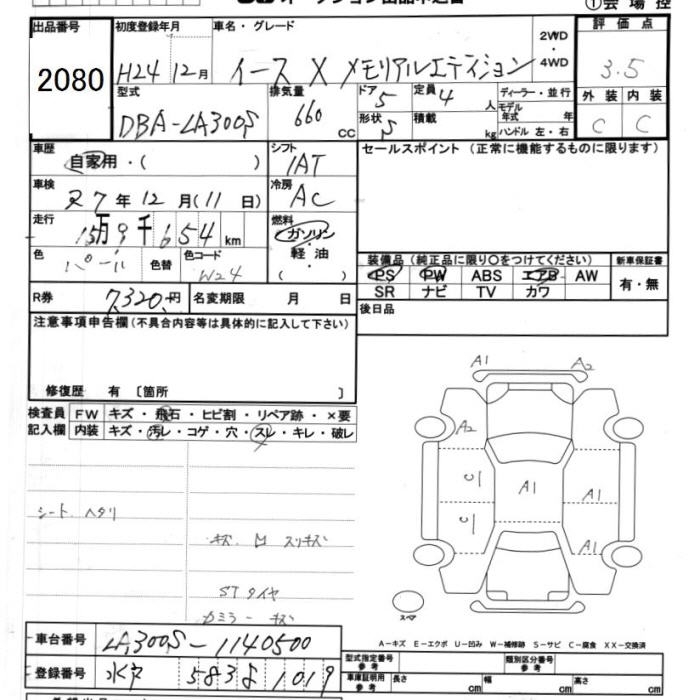 ①会場控
出品番号 2080
初度登録年月 H24 12月
車名・グレード イース X メモリアルエディション
2WD・4WD
評価点 3.5
型式 DBA-LA300S
排気量 660 cc
ドア 5 定員 4 人
形状 5 積載 kg
ディーラー・並行
モデル年式 年
ハンドル 左・右
外装 内装
C C
車歴 自家用・( )
シフト 1AT
セールスポイント (正常に機能するものに限ります)
車検 R7年12月(11日)
冷房 AC
走行 15万9千654km
燃料 ガソリン・軽油・( )
色 パール 色替 色コード W24
装備品 (純正品に限り○をつけてください) 新車保証書
PS PW ABS エアB AW 有・無
SR ナビ TV カワ
R券 7,320円 名変期限 月 日
後日品
注意事項申告欄(不具合内容等は具体的に記入して下さい)
修復歴 有 〔箇所 〕
検査員 FW キズ・飛石・ヒビ割・リペア跡・×要
記入欄 内装 キズ・汚レ・コゲ・穴・スレ・キレ・破レ
A1 A2
A2
C1 A1 A1
C1
A1
シート ヘタリ
キズ 凹 スリキズ
STタイヤ
カミラー キズ
スペア
車台番号 LA300S-1140500
A-キズ E-エクボ U-凹み W-補修跡 S-サビ C-腐食 XX-交換済
型式指定番号 参考 類別区分番号 参考
登録番号 水戸 583 1019
車庫証明用 参考 長さ cm 幅 cm 高さ cm